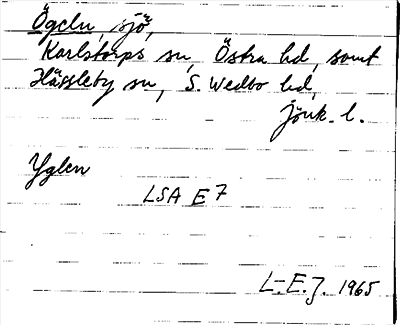 Ögeln, sjö,
Karlstorps sn, Östra hd, samt
Hässleby sn, S. Wedbo hd,
Jönk. l.
Yglen
LSA E7
L-E. J. 1965